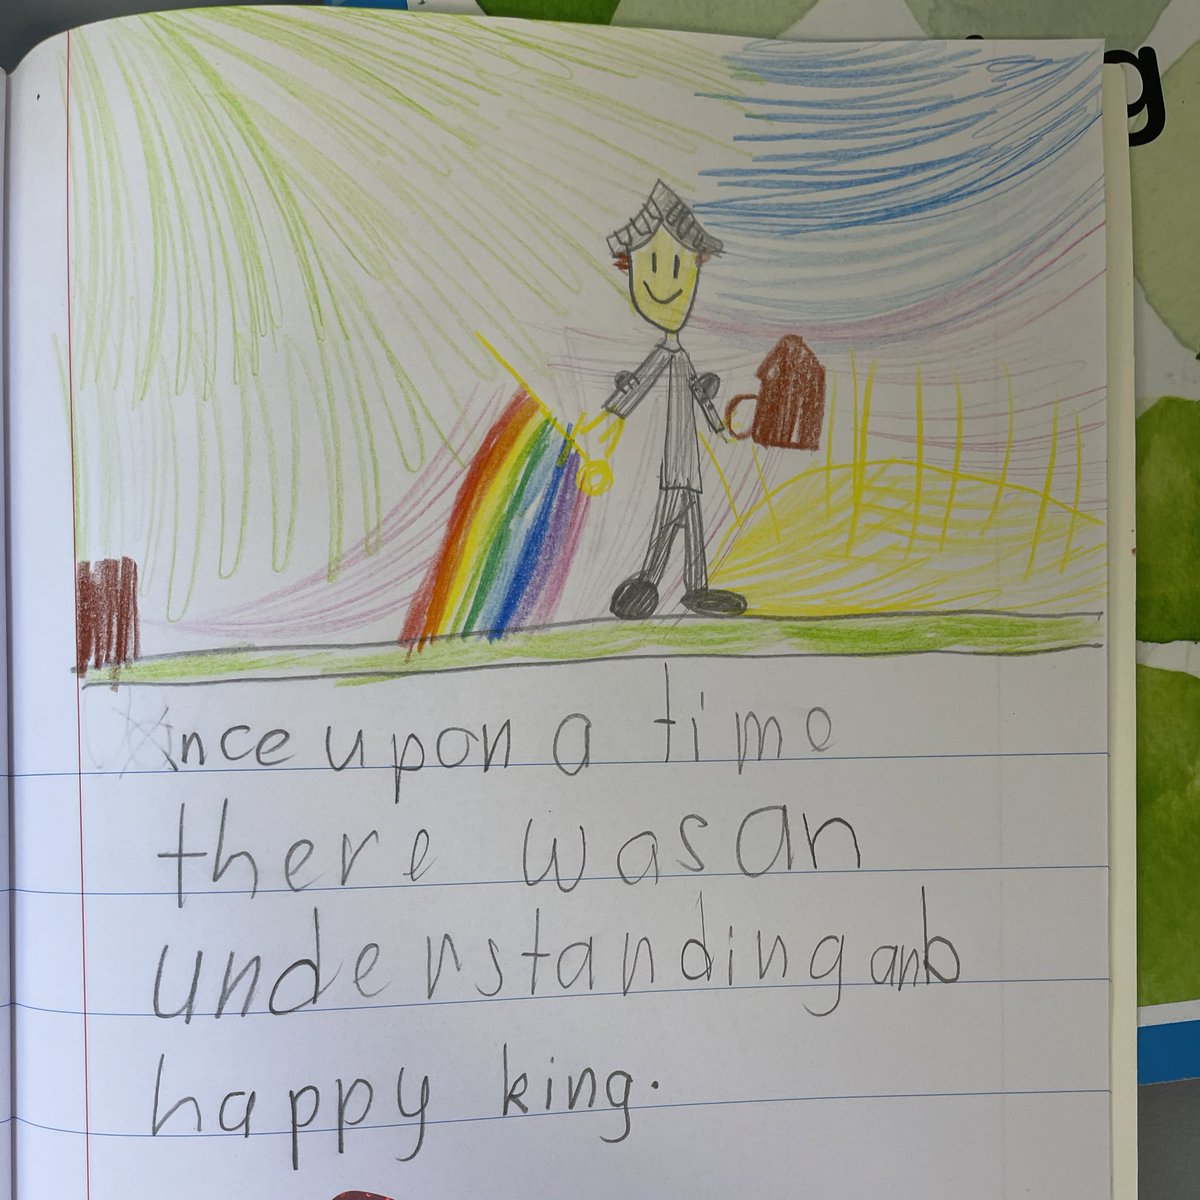 Once upon a time
there was an
understanding anb
happy king.
g